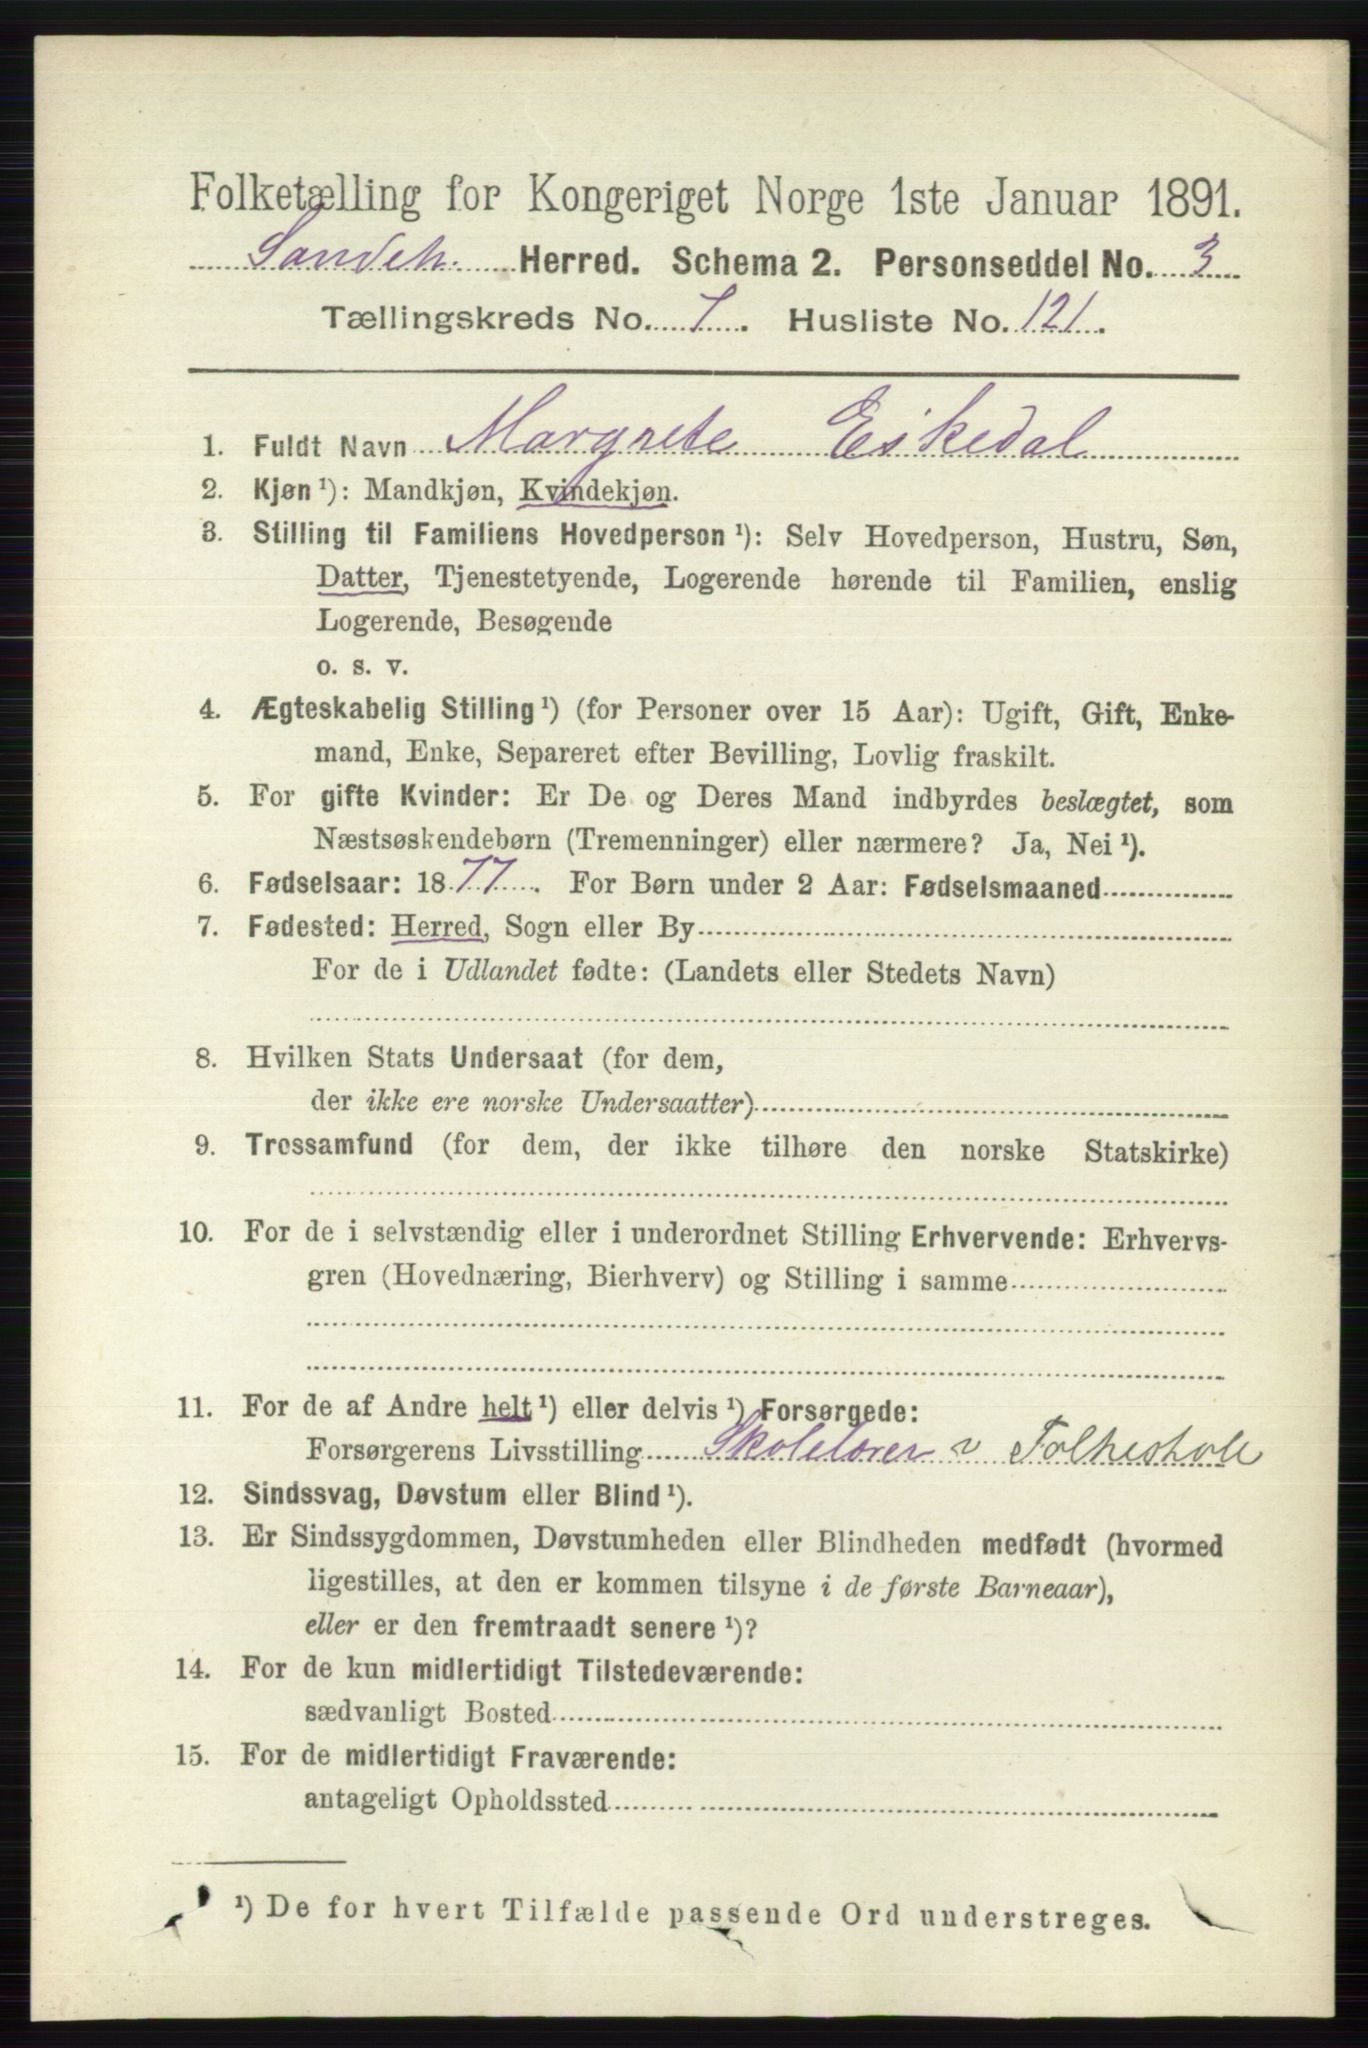 Folketælling for Kongeriget Norge 1ste Januar 1891.
Sandeh. Herred. Schema 2. Personseddel No. 3
Tællingskreds No. 7. Husliste No. 121.
1. Fuldt Navn Margrete Eskedal
2. Kjøn ¹): Mandkjøn, Kvindekjøn.
3. Stilling til Familiens Hovedperson ¹): Selv Hovedperson, Hustru, Søn,
Datter, Tjenestetyende, Logerende hørende til Familien, enslig
Logerende, Besøgende
o. s. v.
4. Ægteskabelig Stilling ¹) (for Personer over 15 Aar): Ugift, Gift, Enke-
mand, Enke, Separeret efter Bevilling, Lovlig fraskilt.
5. For gifte Kvinder: Er De og Deres Mand indbyrdes beslægtet, som
Næstsøskendebørn (Tremenninger) eller nærmere? Ja, Nei ¹).
6. Fødselsaar: 1877. For Børn under 2 Aar: Fødselsmaaned
7. Fødested: Herred, Sogn eller By
For de i Udlandet fødte: (Landets eller Stedets Navn)
8. Hvilken Stats Undersaat (for dem,
der ikke ere norske Undersaatter)
9. Trossamfund (for dem, der ikke tilhøre den norske Statskirke)
10. For de i selvstændig eller i underordnet Stilling Erhvervende: Erhvervs-
gren (Hovednæring, Bierhverv) og Stilling i samme
11. For de af Andre helt ¹) eller delvis ¹) Forsørgede:
Forsørgerens Livsstilling Skolelærer v Folkeskole
12. Sindssvag, Døvstum eller Blind ¹).
13. Er Sindssygdommen, Døvstumheden eller Blindheden medfødt (hvormed
ligestilles, at den er kommen tilsyne i de første Barneaar),
eller er den fremtraadt senere ¹)?
14. For de kun midlertidigt Tilstedeværende:
sædvanligt Bosted
15. For de midlertidigt Fraværende:
antageligt Opholdssted
¹) De for hvert Tilfælde passende Ord understreges.